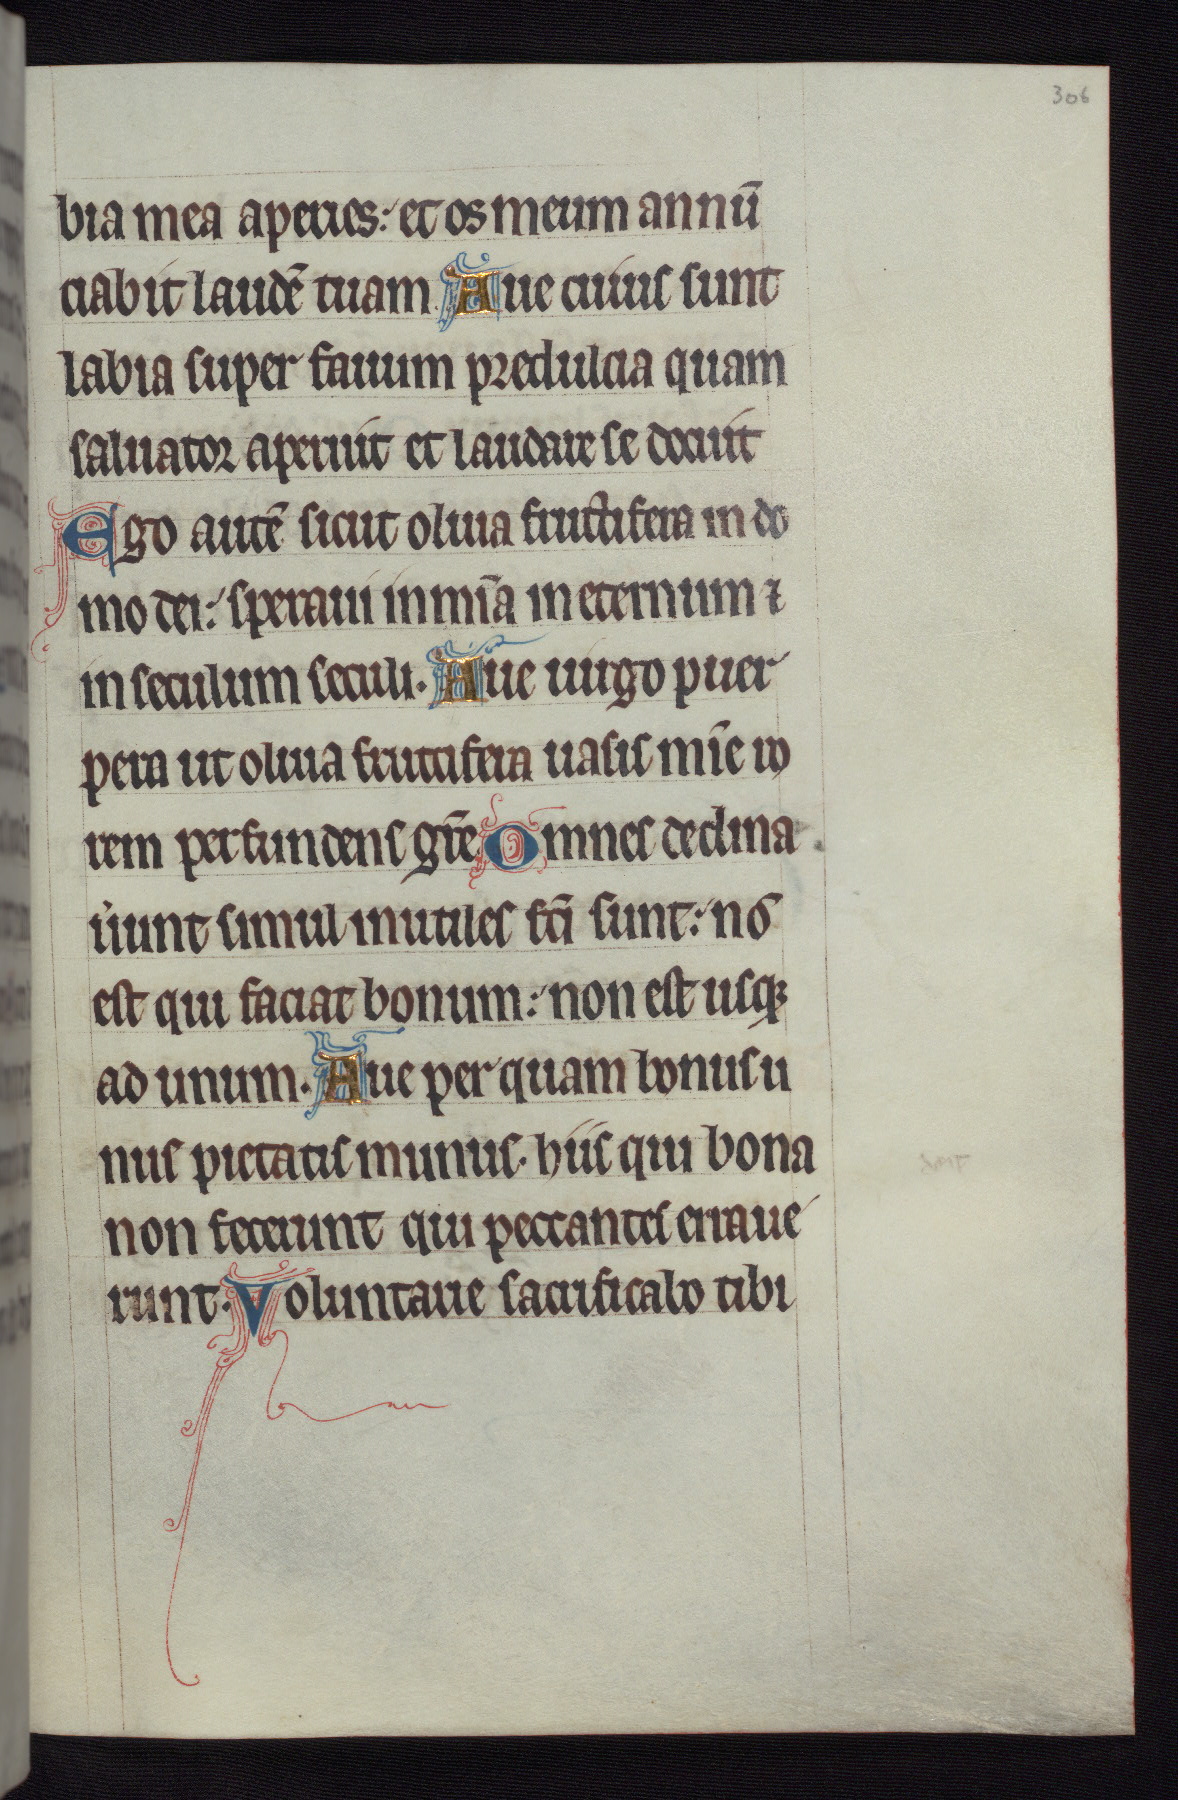 306
bia mea aperies: et os meum annū
ciabit laudē tuam. Aue cuius sunt
labia super fauum predulcia quam
saluator aperuit et laudare se docuit
Ego autē sicut oliua fructifera in do
mo dei: speraui in mīa in eternum ⁊
in seculum seculi. Aue uirgo puer
pera ut oliua fructifera uasis mīe ro
rem perfundens gr̄e Omnes declina
uunt simul inutiles fc̄i sunt: nō
est qui faciat bonum: non est usqꝫ
ad unum. Aue per quam bonus u
nus pietatis munus. hiis qui bona
non fecerunt qui peccantes erraue
runt. Voluntarie sacrificabo tibi